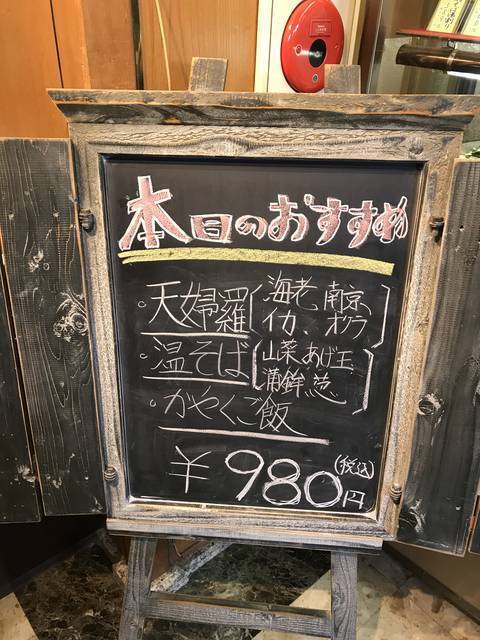 本日のおすすめ
・天婦羅(海老、南京、
イカ、オクラ)
・温そば(山菜、あげ玉、
蒲鉾、葱)
・かやくご飯
¥980円(税込)